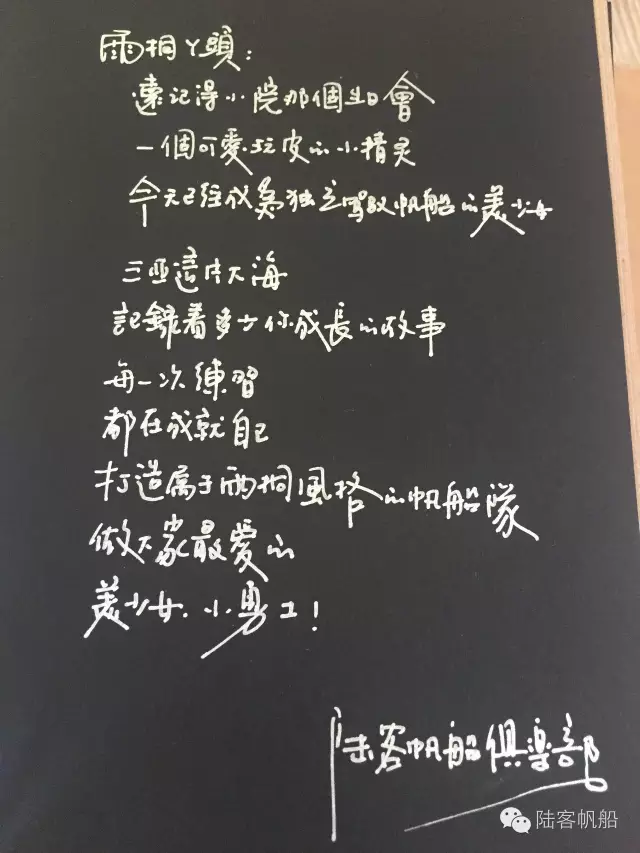 雨桐丫頭：
還記得小院那個生日會
一個可愛玩皮的小精灵
今天已经成為独立驾驭帆船的美少女
三亚這片大海
記録着多少你成長的故事
每一次練習
都在成就自己
打造属于雨桐風格的帆船隊
做大家最爱的
美少女.小勇士!
陆客帆船俱樂部
陆客帆船